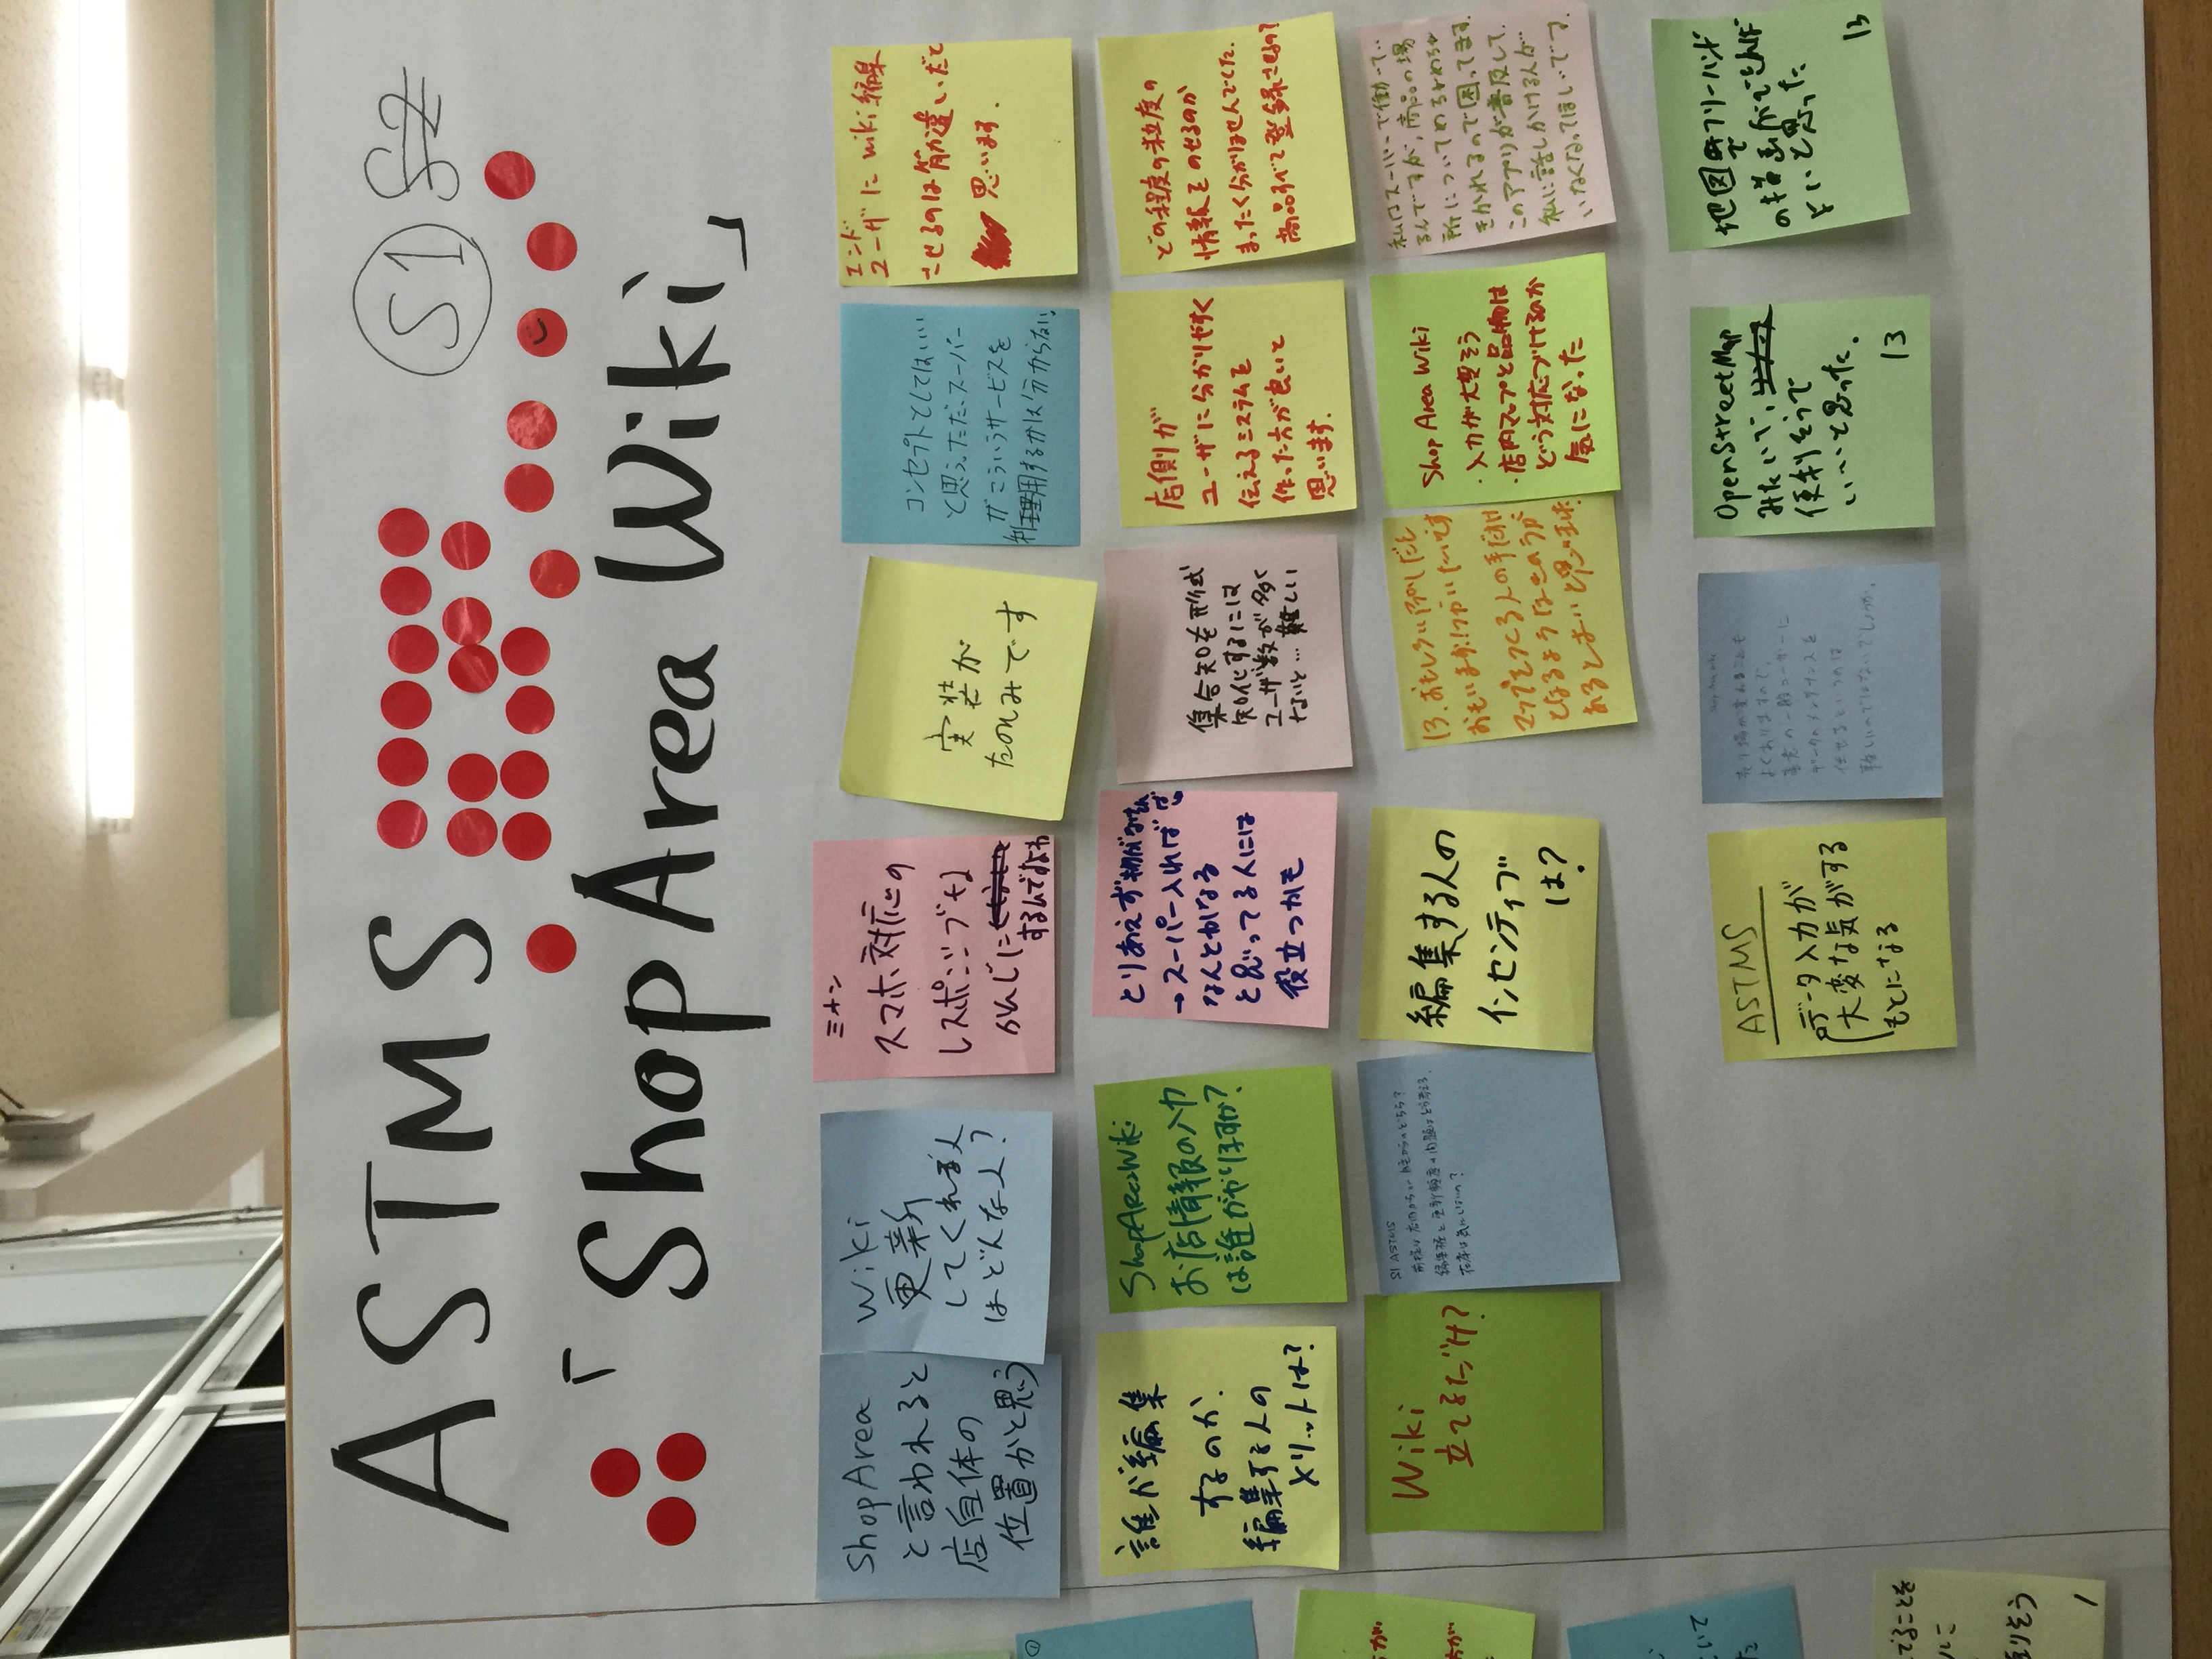 ASTMS
S1
S2
「ShopArea Wiki」
ShopArea
と言われると
店自体の
位置かと思う
Wiki
更新
してくれる人
はどんな人?
ミナン
スマホ対応の
レスポンシブな
かんじに
するんですよね
実装が
たのしみです
コンセプトとしてはいい
と思う。ただ、スーパー
がこういうサービスを
利用するかは分からない。
エンド
ユーザに wiki 編集
させるのは筋違いだと
思います.
誰が編集
するのか.
編集する人の
メリットは?
ShopAreaWiki
お店情報の入力
は誰がやりますか?
とりあえず物が
→スーパー入れば
なんとかなる
と思ってる人には
役立つかも
集合知を形式
知化するには
ユーザ数が多く
ないと… 難しい
店側が
ユーザに分かりやすく
伝えるシステムを
作った方が良いと
思います.
どの程度の粒度の
情報をのせるのか
まったく分かりませんでした.
商品すべて登録させるの?
Wiki
立てるだけ?
S1 ASTMS
編集する人の
インセンティブ
は?
13. おもしろい
おもいます!つかいたいです
マップをつくる人の手だすけ
となるようなきのうが
あるとよいと思いました.
Shop Area Wiki
・入力が大変そう
・店内マップと品物は
どう対応づけるのか
気になった
私はスーパーで働いて..
るんですが、商品の場
所についてめちゃめちゃ
きかれるので困ってます.
このアプリが普及して.
私に話しかける人が
いなくなってほしいです.
ASTMS
データ入力が
大変な気がする
もとになる
Shop Area Wiki
売り場が変わることも
よくありますので、
善意の一般ユーザーに
データのメンテナンスを
任せるというのは
難しいのではないでしょうか.
OpenStreetMap
みたいで、
便利そうで
いいと思った.
13
地図で フリーハンド
の描画ができれば
よいと思った
13